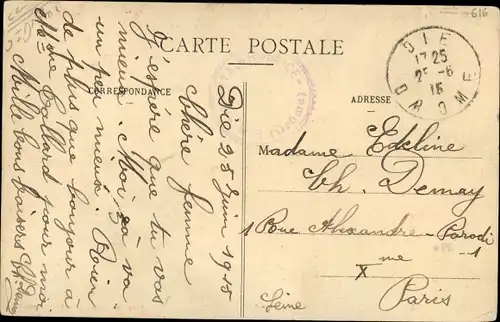 CARTE POSTALE
CORRESPONDANCE
ADRESSE
DIE
17 25
25-6
15
DROME
Die 25 Juin 1915
Chère femme
J'espère que tu vas
mieux. Moi ça va
un peu mieux. Rien
de plus que bonjour à
Callard pour moi
Mille bons baisers Ch Demay
Madame Edeline
Ch. Demay
1 Rue Alexandre-Parodi
-1
X me
Paris
Seine
616